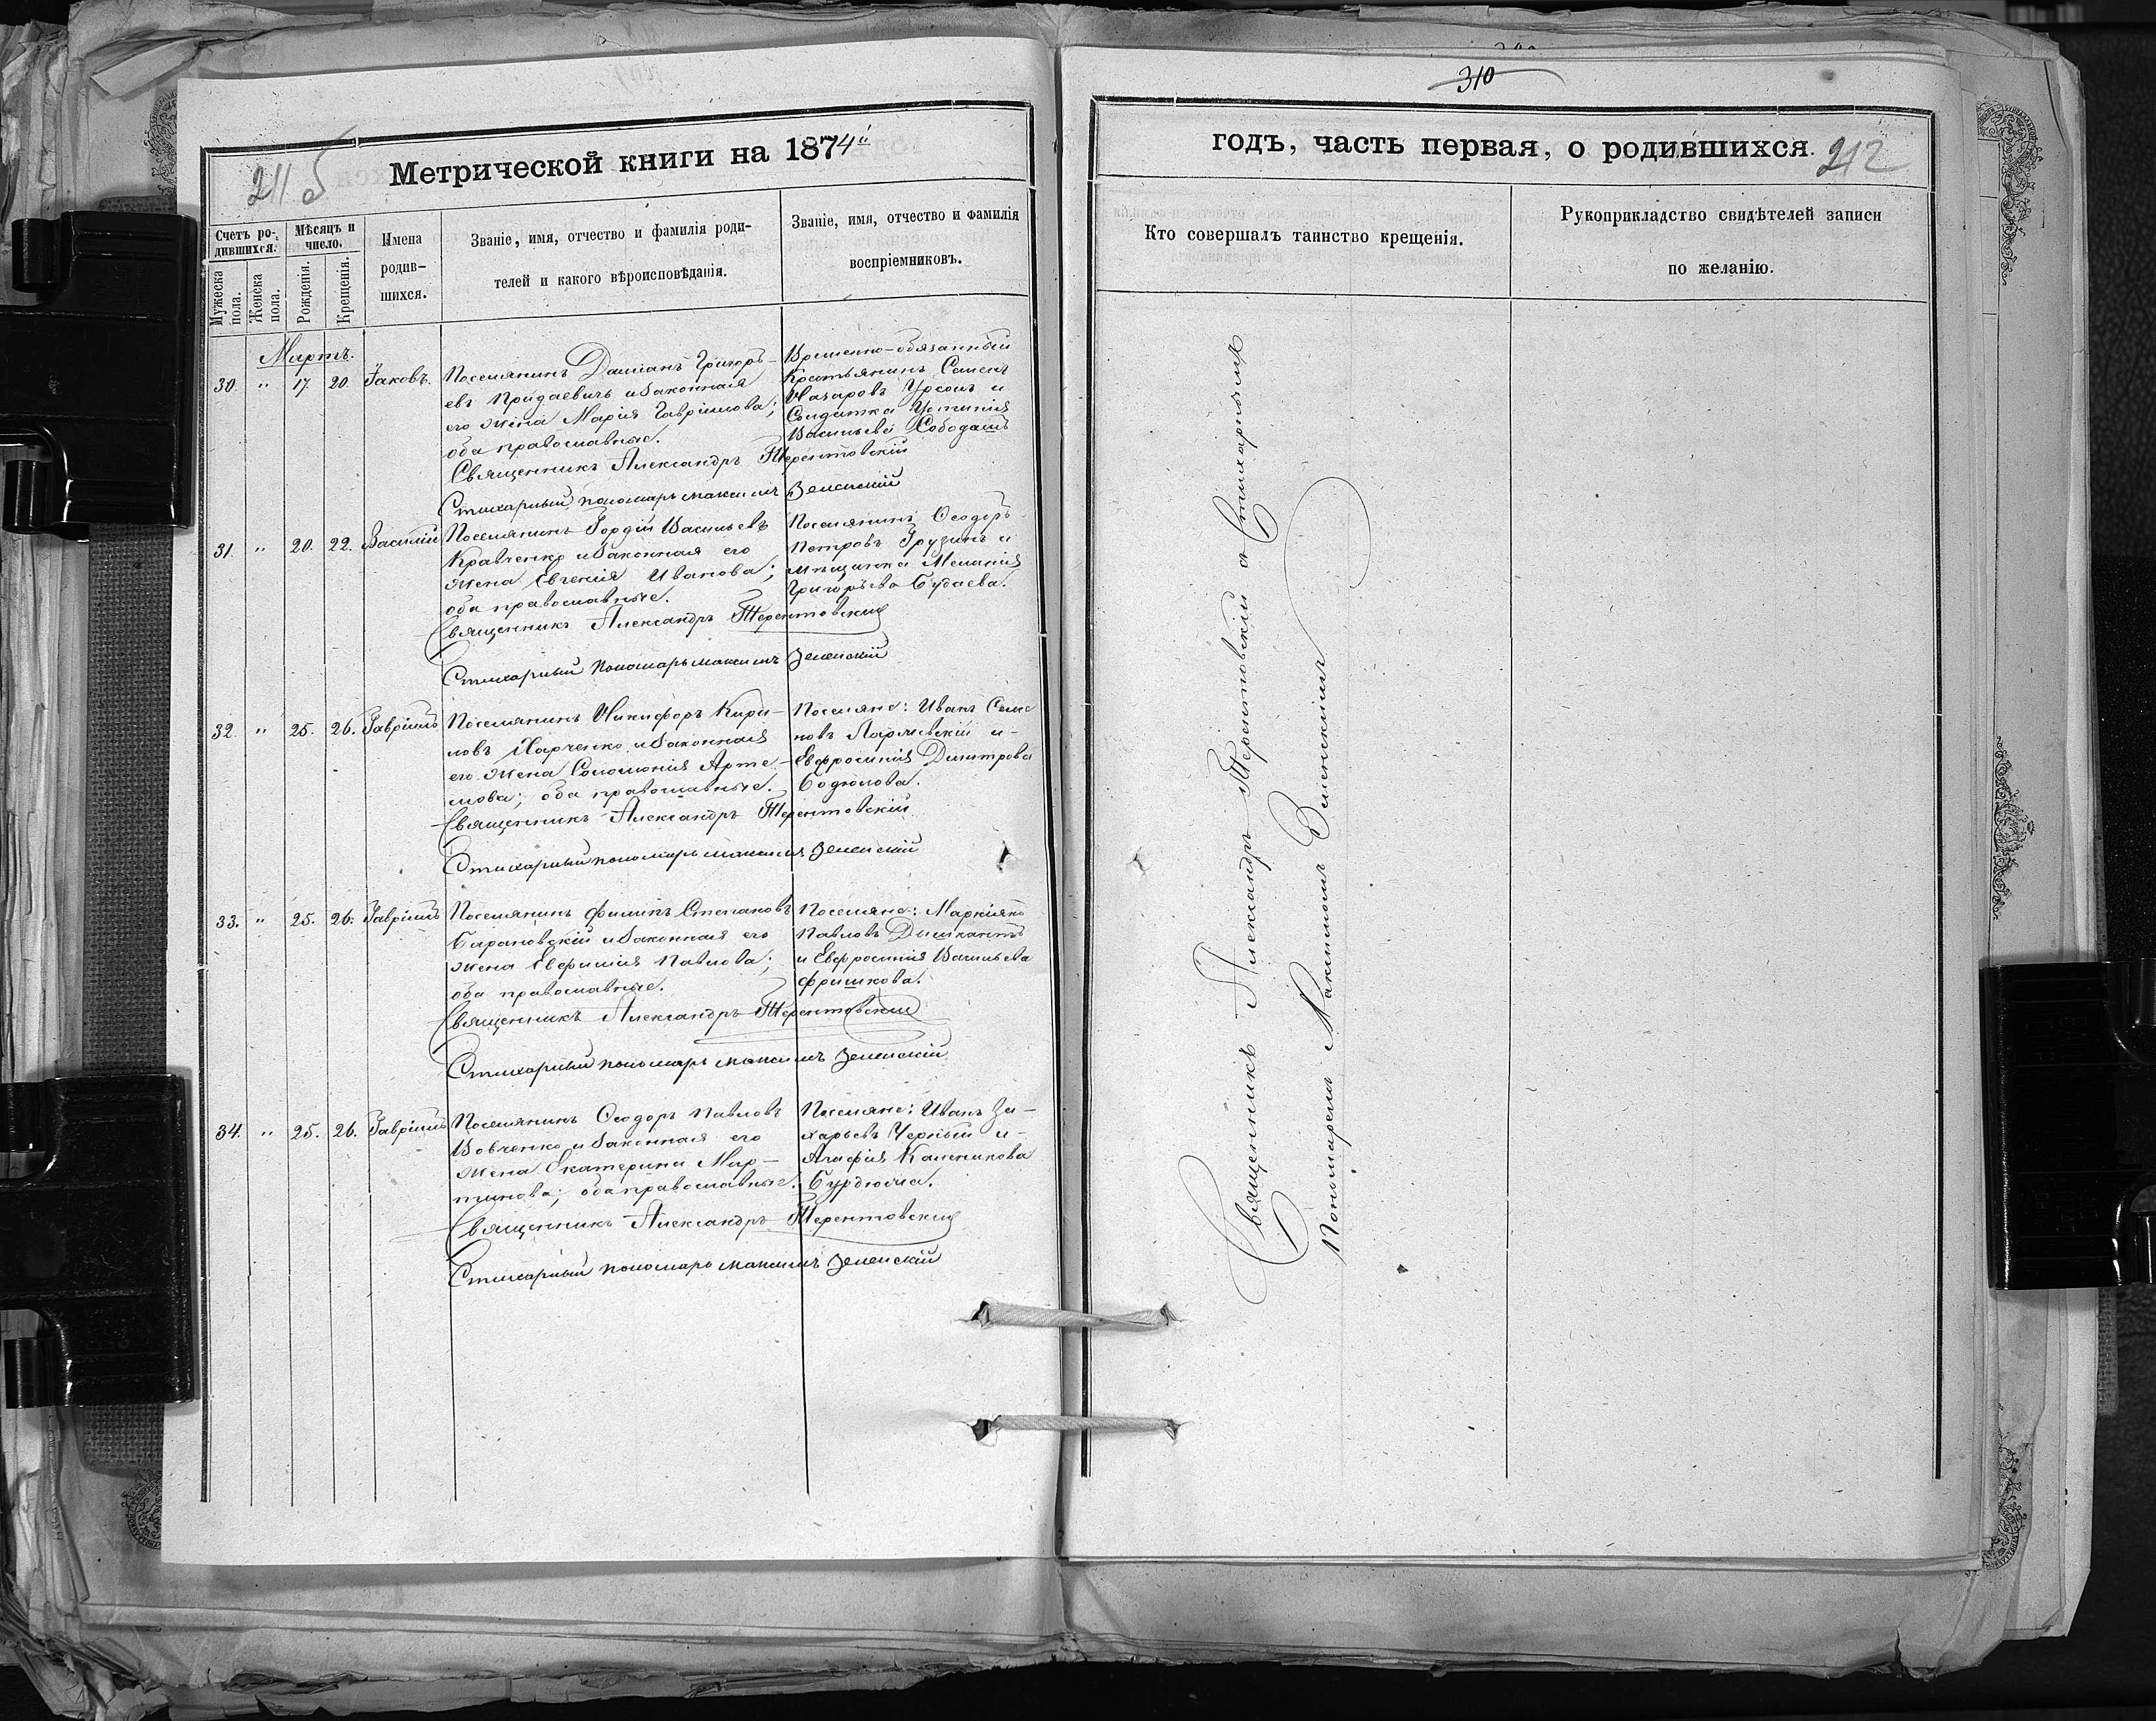 211 б
Метрической книги на 1874й
Счетъ ро-
дившихся.
Мѣсяцъ и
число.
Имена
родив-
шихся.
Званіе, имя, отчество и фамилія роди-
телей и какого вѣроисповѣданія.
Званіе, имя, отчество и фамилія
воспріемниковъ.
Мужеска
пола.
Женска
пола.
Рожденія.
Крещенія.
Мартъ.
30. " 17 20. Іаковъ.
Поселянинъ Даміанъ Григорь-
евъ Придаевичъ и законная
его жена Марія Гавріилова;
оба православные.
Временно-обязанный
Крестьянинъ Семенъ
Назаровъ Урсолъ и
Солдатка Устинія
Васильева
Священникъ Александръ Терентовскій
Стихарный пономарь Максимъ Зеленскій
31. " 20. 22. Василій
Поселянинъ Гордій Васильевъ
Кравченко и законная его
жена Евгенія Иванова;
оба православные.
Поселянинъ Ѳеодоръ
Петровъ Грузинъ и
мѣщанка Меланія
Григорьева Будаева.
Священникъ Александръ Терентовскій
Стихарный пономарь Максимъ Зеленскій
32. " 25. 26. Гавріилъ
Поселянинъ Никифоръ Кири-
ловъ Харченко и законная
его жена Соломонія Арте-
мова; оба православные.
Поселяне: Иванъ Семе
новъ и-
Евфросинія Димитрова
Бодюлова.
Священникъ Александръ Терентовскій
Стихарный пономарь Максимъ Зеленскій
33. " 25. 26. Гавріилъ
Поселянинъ Филипъ Степановъ
Барановскій и законная его
жена Евфимія Павлова;
оба православные.
Поселяне: Маркіянъ
Павловъ Дишкантъ
и Евфросинія Васильева
Фришкова.
Священникъ Александръ Терентовскій
Стихарный пономарь Максимъ Зеленскій
34. " 25. 26. Гавріилъ
Поселянинъ Ѳеодоръ Павловъ
Вовченко и законная его
жена Екатерина Мар-
тинова; оба православные.
Поселяне: Иванъ За-
харьевъ Черный и-
Агафія Каленикова
Бурдюжа.
Священникъ Александръ Терентовскій
Стихарный пономарь Максимъ Зеленскій
310
годъ, часть первая, о родившихся.
212
Кто совершалъ таинство крещенія.
Рукоприкладство свидѣтелей записи
по желанію.
Священникъ Александръ Терентовскій съ Стихарнымъ
Пономаремъ Максимомъ Зеленскимъ